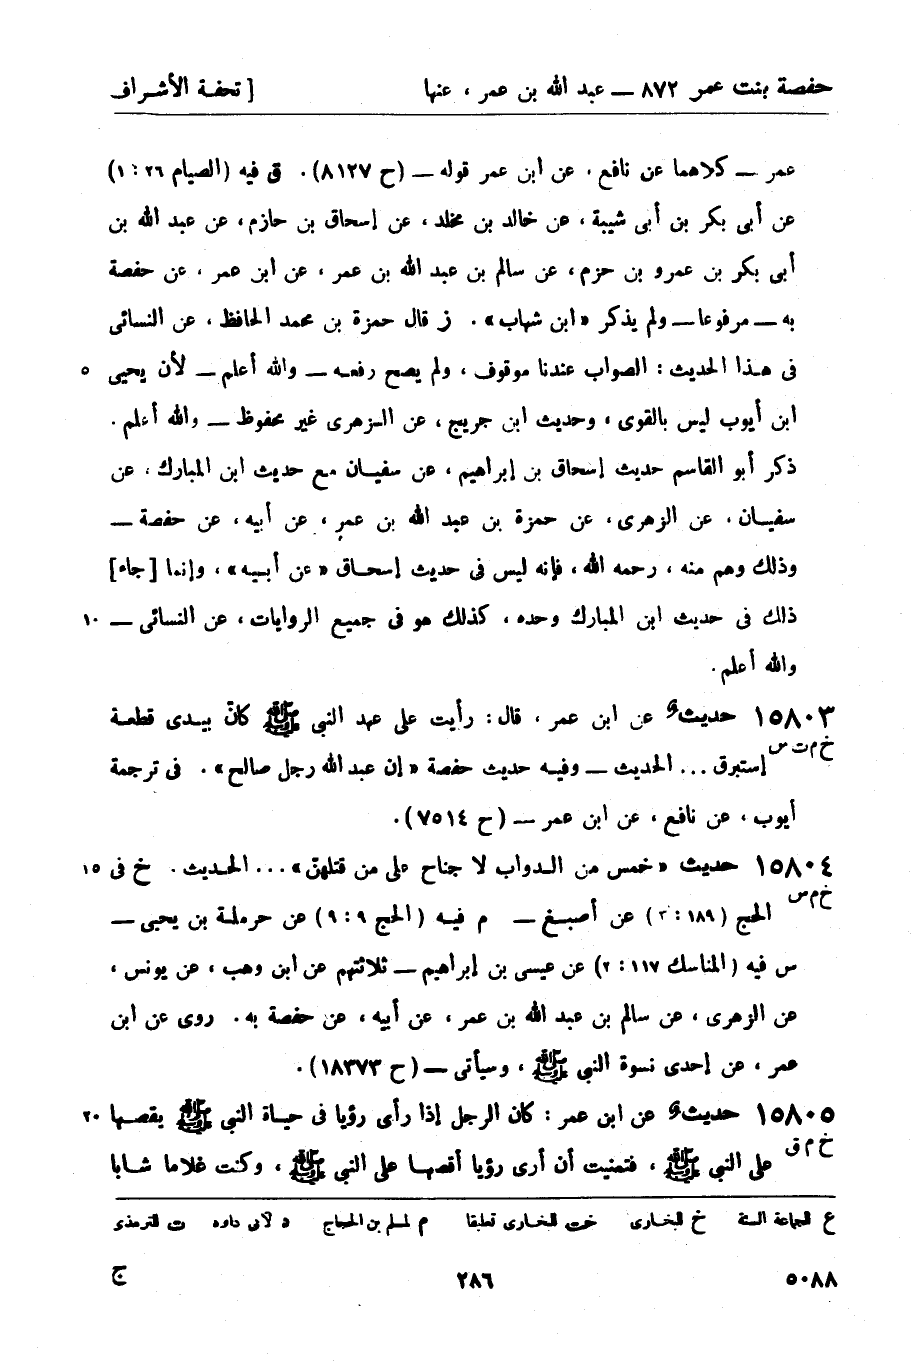 حفصة بنت عمر ٨٧٢ — عبد الله بن عمر ، عنها [ تحفة الأشراف
عمر — كلاهما عن نافع ، عن ابن عمر قوله — (ح ٨١٢٧). ق فيه (الصيام ٢٦ : ١)
عن أبى بكر بن أبى شيبة ، عن خالد بن مخلد ، عن إسحاق بن حازم ، عن عبد الله بن
أبى بكر بن عمرو بن حزم ، عن سالم بن عبد الله بن عمر ، عن ابن عمر ، عن حفصة
به — مرفوعا — ولم يذكر « ابن شهاب » . ز قال حمزة بن محمد الحافظ ، عن النسائى
فى هذا الحديث : الصواب عندنا موقوف ، ولم يصح رفعه — والله أعلم — لأن يحيى ٥
ابن أيوب ليس بالقوى ، وحديث ابن جريج ، عن الزهرى غير محفوظ — والله أعلم .
ذكر أبو القاسم حديث إسحاق بن إبراهيم ، عن سفيان مع حديث ابن المبارك ، عن
سفيان ، عن الزهرى ، عن حمزة بن عبد الله بن عمر ، عن أبيه ، عن حفصة —
وذلك وهم منه ، رحمه الله ، فإنه ليس فى حديث إسحاق « عن أبيه » ، وإنما [جاء]
ذلك فى حديث ابن المبارك وحده ، كذلك هو فى جميع الروايات ، عن النسائى — ١٠
والله أعلم .
١٥٨٠٣ حديث و عن ابن عمر ، قال : رأيت على عهد النبى ﷺ كأنّ بيدى قطعة
خ م ت س إستبرق ... الحديث — وفيه حديث حفصة « إن عبد الله رجل صالح » . فى ترجمة
أيوب ، عن نافع ، عن ابن عمر — (ح ٧٥١٤).
١٥٨٠٤ حديث « خمس من الدواب لا جناح على من قتلهنّ » ... الحديث . خ فى ١٥
خ م س الحج (١٨٩ : ٣) عن أصبغ — م فيه (الحج ٩ : ٩) عن حرملة بن يحيى —
س فيه (المناسك ١١٧ : ٢) عن عيسى بن إبراهيم — ثلاثتهم عن ابن وهب ، عن يونس ،
عن الزهرى ، عن سالم بن عبد الله بن عمر ، عن أبيه ، عن حفصة به . روى عن ابن
عمر ، عن إحدى نسوة النبى ﷺ ، وسيأتى — (ح ١٨٣٧٣).
١٥٨٠٥ حديث و عن ابن عمر : كان الرجل إذا رأى رؤيا فى حياة النبى ﷺ يقصها ٢٠
خ م ق على النبى ﷺ ، فتمنيت أن أرى رؤيا أقصها على النبى ﷺ ، وكنت غلاما شابا
ع للجماعة الستة خ للبخارى خت للبخارى تعليقا م لمسلم بن الحجاج د لأبى داود ت للترمذى
٥٠٨٨ ٢٨٦ ج